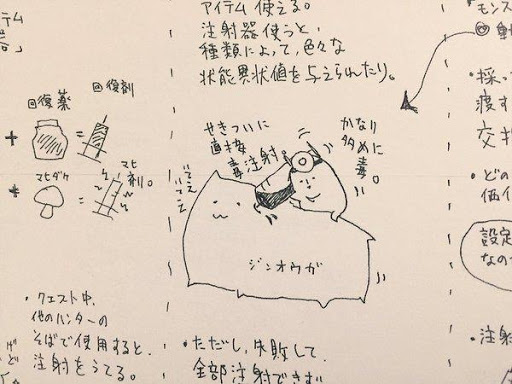 テム
アイテム使える。
注射器使うと、
種類によって、色々な
状態異状値を与えられたり。
モンス
回復薬
回復剤
+
=
マヒダケ
マヒ剤。
+
=
せきついに
直接
毒注射。
かなり
多めに
毒。
いてえ
いてえ
ジンオウガ
・採っ
渡す
交換
・どの
価イ
設定
なの
・クエスト中、
他のハンターの
そばで使用すると、
注射をうてる。
・ただし、失敗して
全部注射できず
・注射